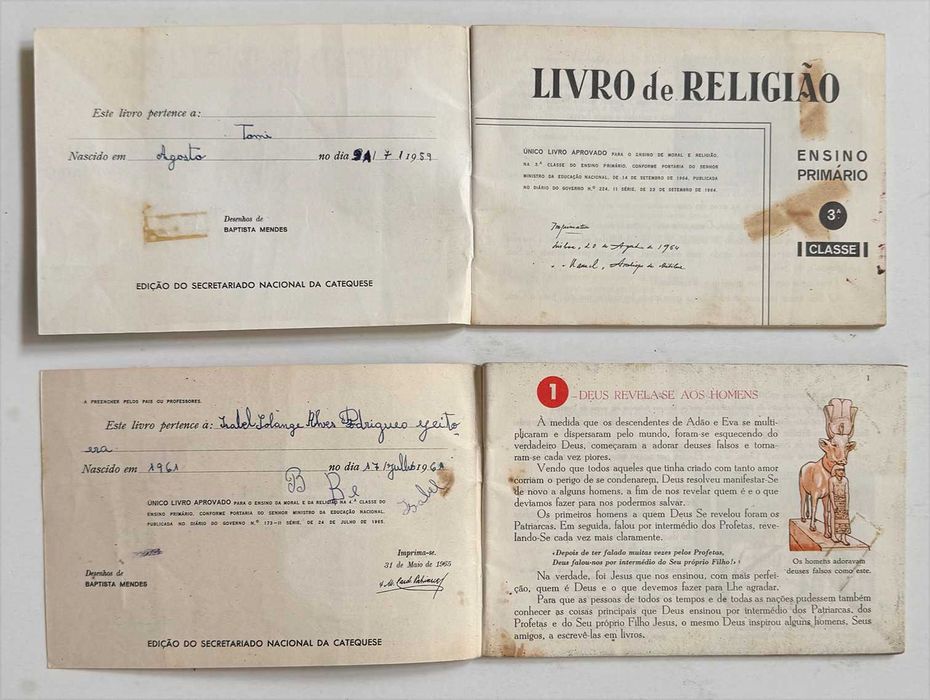 Este livro pertence a:
Tomi
Nascido em Agosto no dia 21/7/1959
Desenhos de
BAPTISTA MENDES
EDIÇÃO DO SECRETARIADO NACIONAL DA CATEQUESE
LIVRO de RELIGIÃO
ÚNICO LIVRO APROVADO PARA O ENSINO DE MORAL E RELIGIÃO,
NA 3.ª CLASSE DO ENSINO PRIMÁRIO, CONFORME PORTARIA DO SENHOR
MINISTRO DA EDUCAÇÃO NACIONAL, DE 14 DE SETEMBRO DE 1964, PUBLICADA
NO DIÁRIO DO GOVERNO N.º 224, II SÉRIE, DE 23 DE SETEMBRO DE 1964.
ENSINO
PRIMÁRIO
3.ª
CLASSE
Imprimatur
Lisboa, 20 de Agosto de 1964
Manuel,
A PREENCHER PELOS PAIS OU PROFESSORES.
Este livro pertence à: Isabel Solange Alves Rodrigues Yeito
era
Nascido em 1961 no dia 17 julho 1961
B Be Isabel
ÚNICO LIVRO APROVADO PARA O ENSINO DA MORAL E DA RELIGIÃO NA 4.ª CLASSE DO
ENSINO PRIMÁRIO, CONFORME PORTARIA DO SENHOR MINISTRO DA EDUCAÇÃO NACIONAL,
PUBLICADA NO DIÁRIO DO GOVERNO N.º 173-II SÉRIE, DE 24 DE JULHO DE 1965.
Imprima-se.
31 de Maio de 1965
Desenhos de
BAPTISTA MENDES
EDIÇÃO DO SECRETARIADO NACIONAL DA CATEQUESE
1
1 - DEUS REVELA-SE AOS HOMENS
À medida que os descendentes de Adão e Eva se multi-
plicaram e dispersaram pelo mundo, foram-se esquecendo do
verdadeiro Deus, começaram a adorar deuses falsos e torna-
ram-se cada vez piores.
Vendo que todos aqueles que tinha criado com tanto amor
corriam o perigo de se condenarem, Deus resolveu manifestar-Se
de novo a alguns homens, a fim de nos revelar quem é e o que
devíamos fazer para nos podermos salvar.
Os primeiros homens a quem Deus Se revelou foram os
Patriarcas. Em seguida, falou por intermédio dos Profetas, reve-
lando-Se cada vez mais claramente.
«Depois de ter falado muitas vezes pelos Profetas,
Deus falou-nos por intermédio do Seu próprio Filho!»
Os homens adoravam
deuses falsos como este.
Na verdade, foi Jesus que nos ensinou, com mais perfei-
ção, quem é Deus e o que devemos fazer para Lhe agradar.
Para que as pessoas de todos os tempos e de todas as nações pudessem também
conhecer as coisas principais que Deus ensinou por intermédio dos Patriarcas, dos
Profetas e do Seu próprio Filho Jesus, o mesmo Deus inspirou alguns homens, Seus
amigos, a escrevê-las em livros.